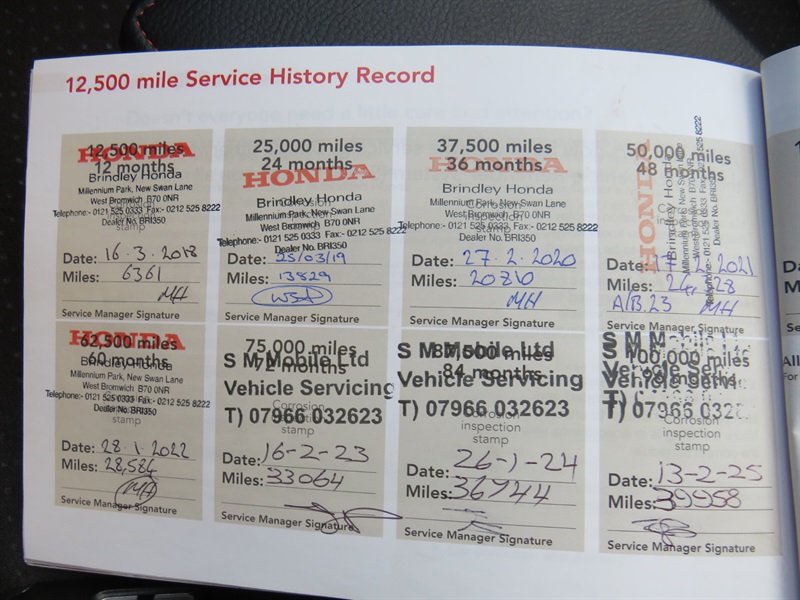 12,500 mile Service History Record
12,500 miles
12 months
HONDA
Brindley Honda
Millennium Park, New Swan Lane
West Bromwich B70 0NR
Telephone:- 0121 525 0333 Fax:- 0212 525 8222
stamp
Date: 16.3.2018
Miles: 6361
MH
Service Manager Signature
25,000 miles
24 months
HONDA
Brindley Honda
Millennium Park, New Swan Lane
West Bromwich B70 0NR
Telephone:- 0121 525 0333 Fax:- 0212 525 8222
Dealer No. BRI350
Date: 25/03/19
Miles: 13829
Service Manager Signature
37,500 miles
36 months
HONDA
Brindley Honda
Corrosion
Millennium Park, New Swan Lane
inspection
West Bromwich B70 0NR
Telephone:- 0121 525 0333 Fax:- 0212 525 8222
Dealer No. BRI350
Date: 27.2.2020
Miles: 20810
MH
Service Manager Signature
50,000 miles
48 months
HONDA
Brindley Honda
Millennium Park, New Swan Lane
West Bromwich B70 0NR
Telephone:- 0121 525 0333 Fax:- 0212 525 8222
Dealer No. BRI350
Date: 17.2.2021
Miles: 24,328
A/B.23 MH
Service Manager Signature
62,500 miles
60 months
HONDA
Brindley Honda
Millennium Park, New Swan Lane
West Bromwich B70 0NR
Telephone:- 0121 525 0333 Fax:- 0212 525 8222
Dealer No. BRI350
stamp
Date: 28.1.2022
Miles: 28,584
MH
Service Manager Signature
75,000 miles
72 months
S M Mobile Ltd
Vehicle Servicing
T) 07966 032623
Corrosion
inspection
stamp
Date: 16-2-23
Miles: 33064
Service Manager Signature
87,500 miles
84 months
S M Mobile Ltd
Vehicle Servicing
T) 07966 032623
Corrosion
inspection
stamp
Date: 26-1-24
Miles: 36944
Service Manager Signature
100,000 miles
96 months
S M Mobile Ltd
Vehicle Servicing
T) 07966 032
Corrosion
inspection
stamp
Date: 13-2-25
Miles: 39958
Service Manager Signature